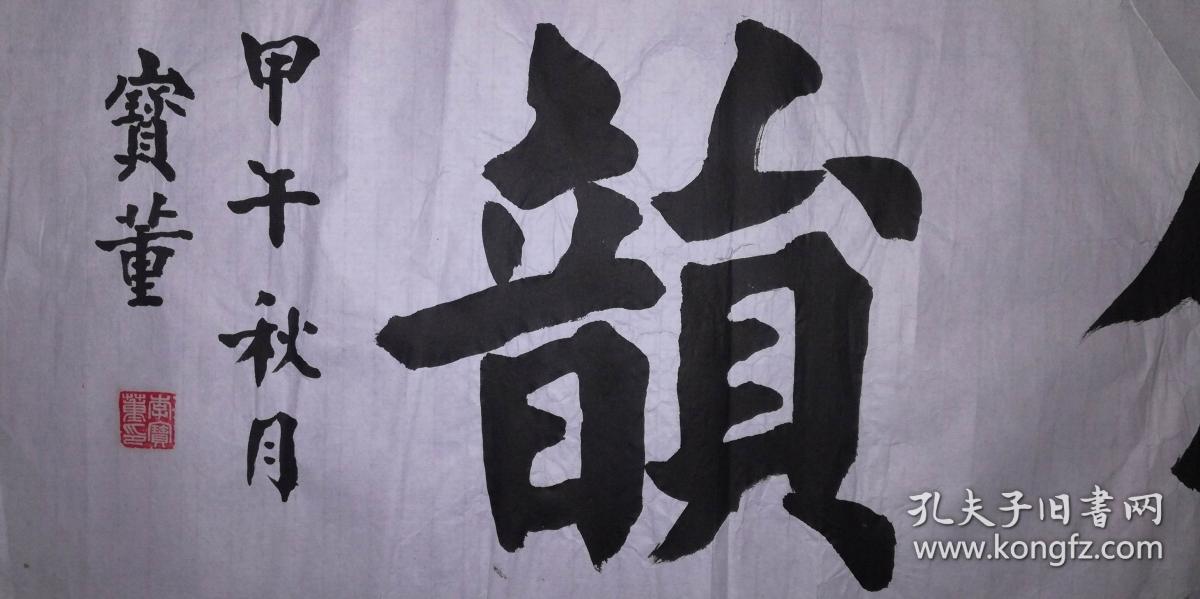 韻
甲午秋月
寶董
李寶董印
孔夫子旧书网
www.kongfz.com